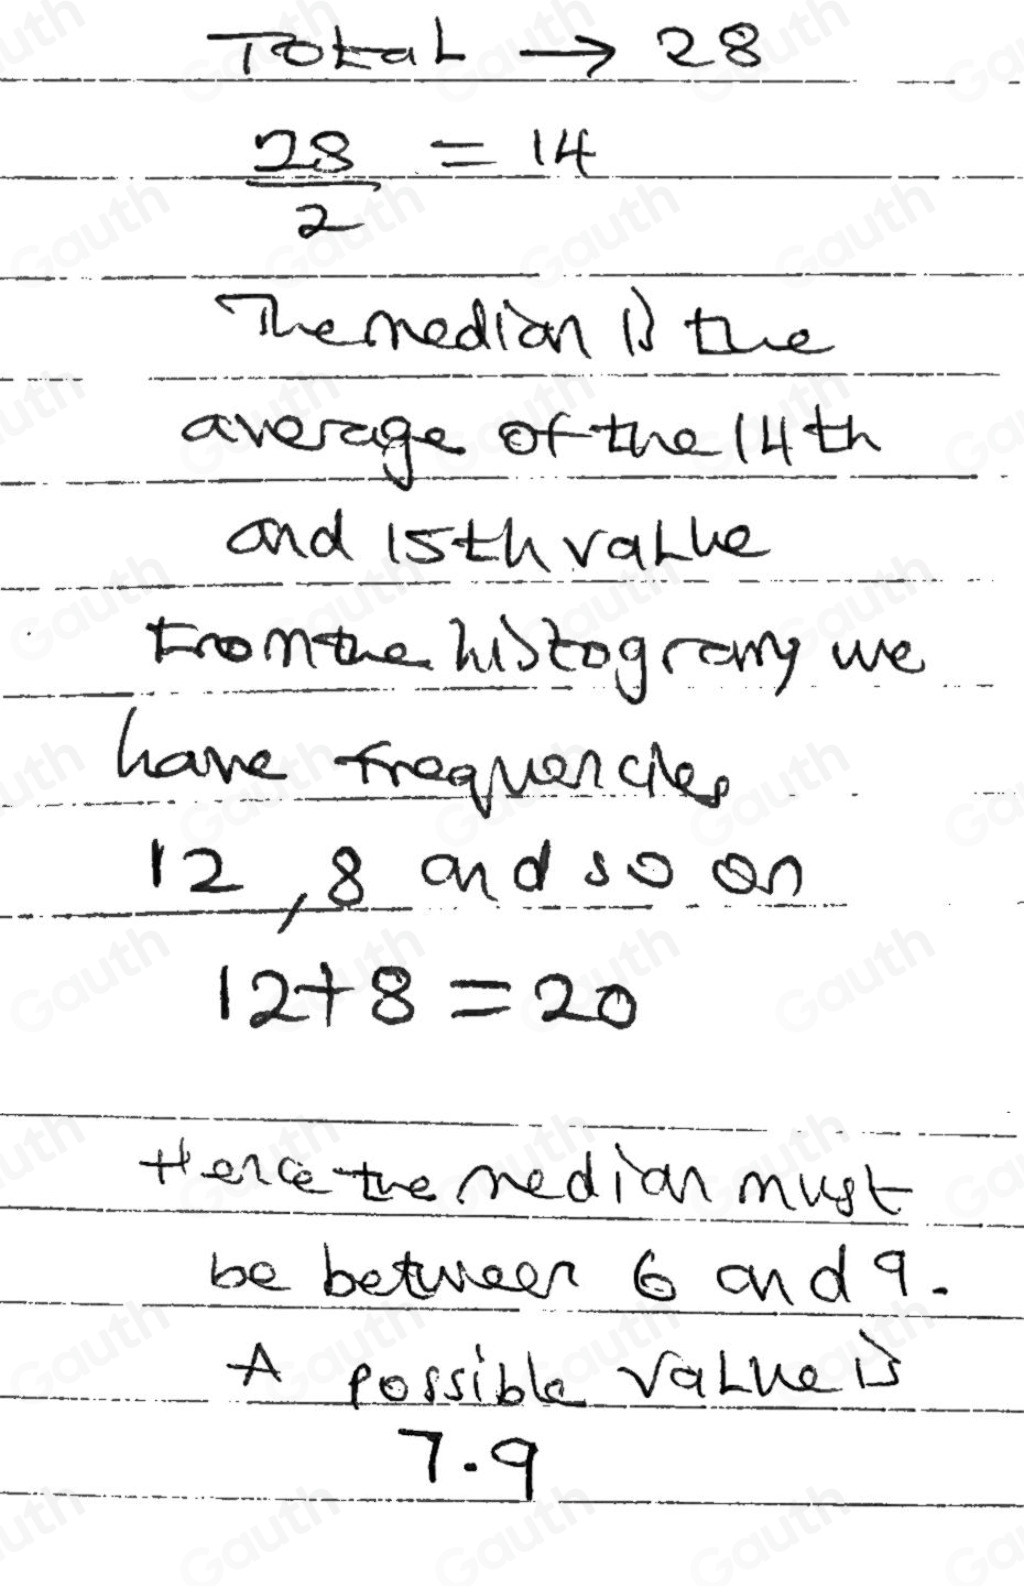 Total → 28
28/2 = 14
The median is the
average of the 14th
and 15th value
From the histogram, we
have frequencies
12, 8 and so on
12+8=20
Hence the median must
be between 6 and 9.
A possible value is
7.9
Gauth